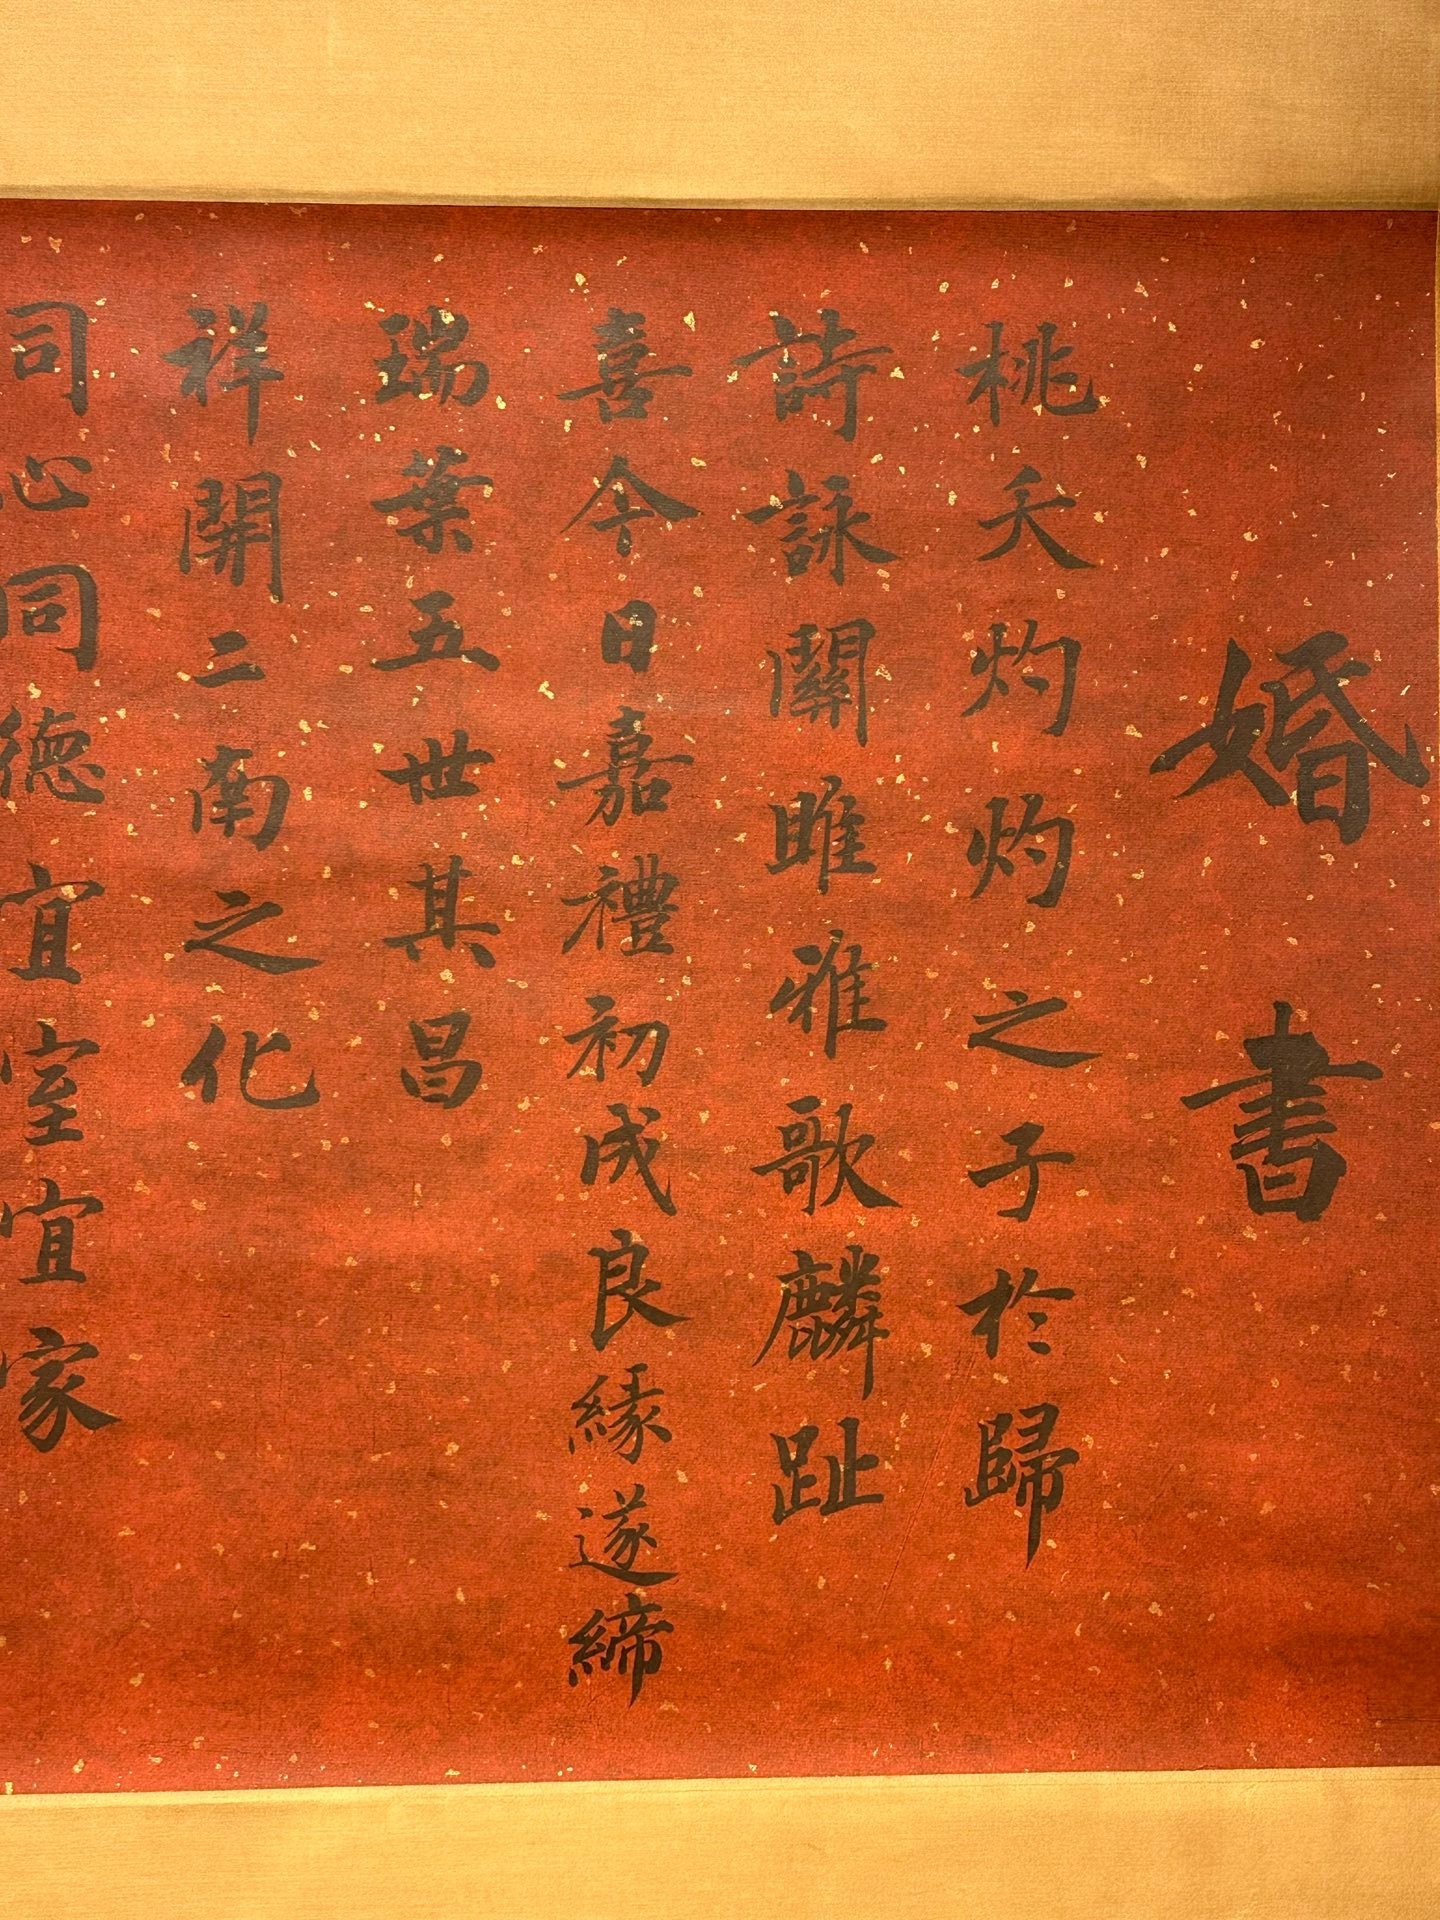 婚書
桃夭灼灼之子於歸
詩詠關雎雅歌麟趾
喜今日嘉禮初成良緣遂締
瑞葉五世其昌
祥開二南之化
同心同德宜室宜家